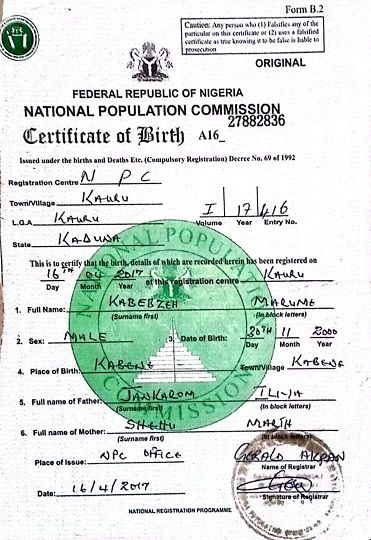 Form B.2
Caution: Any person who (1) Falsifies any of the
particular on this certificate or (2) uses a falsified
certificate as true knowing it to be false is liable to
prosecution
ORIGINAL
FEDERAL REPUBLIC OF NIGERIA
NATIONAL POPULATION COMMISSION
Certificate of Birth A16_ 27882836
Issued under the births and Deaths Etc. (Compulsory Registration) Decree No. 69 of 1992
Registration Centre N P C
Town/Village KAURU I 17 416
L.G.A KAURU Volume Year Entry No.
State KADUNA
This is to certify that the birth, details of which are recorded herein has been registered on
16TH 04 2017 at this registration centre KAURU
Day Month Year
1. Full Name: KABEBZEH MARUME
(Surname first) (In block letters)
2. Sex: MALE 3. Date of Birth: 20TH 11 2000
Day Month Year
4. Place of Birth: KABENE Town/Village KABENE
5. Full name of Father: JANKAROM ILIYA
(Surname first) (In block letters)
6. Full name of Mother: SHEHU MARTH
(Surname first) (In block letters)
Place of Issue: NPC OFFICE GERALD AKPAN
Name of Registrar
Date: 16/4/2017
Signature of Registrar
NATIONAL REGISTRATION PROGRAMME
NATIONAL POPULATION COMMISSION